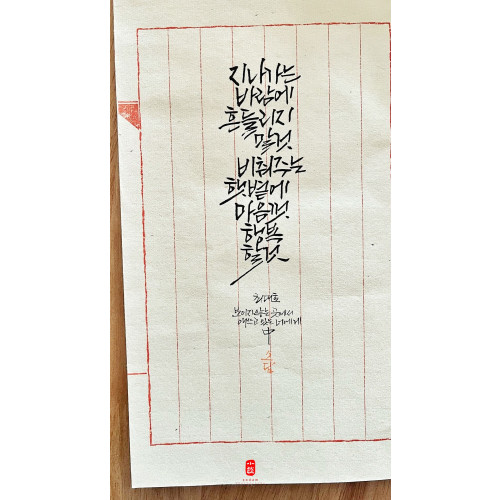 지나가는
바람에
흔들리지
말것
비춰주는
햇볕에
마음껏
행복
할것
최대호
보이지 않는 곳에서
애쓰고 있는 너에게
中
소담